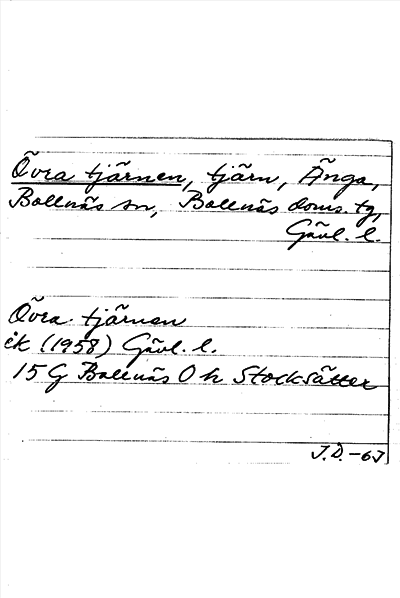 Övra tjärnen, tjärn, Änga,
Bollnäs sn, Bollnäs doms. tg,
Gävl. l.
Övra tjärnen
ek (1958) Gävl. l.
15 G Bollnäs O h Stocksätter
J.D. -63